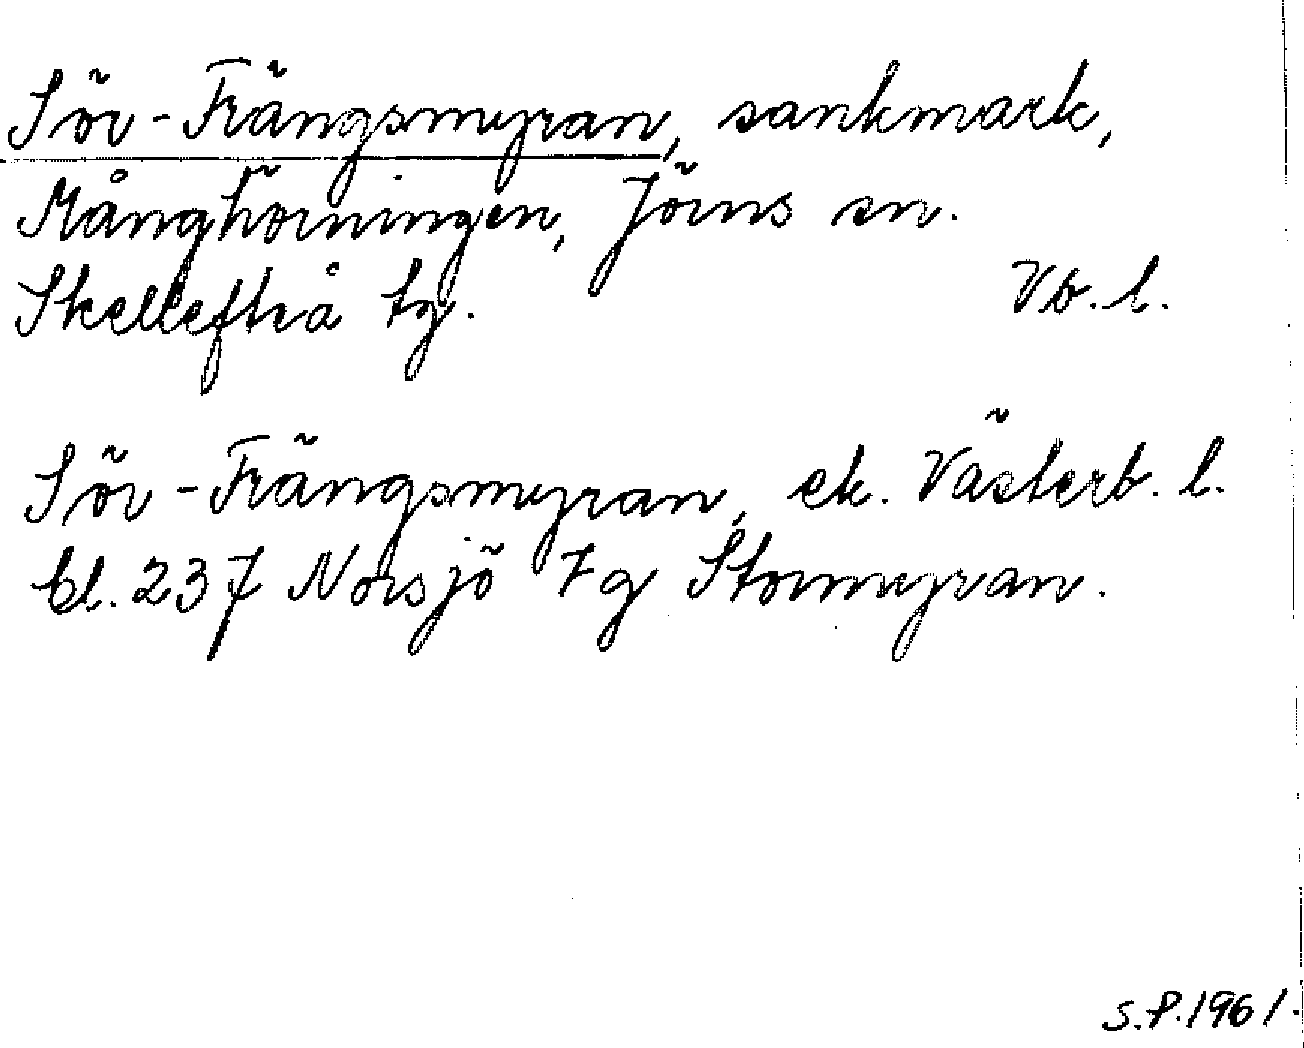 Söv-Frängsmyran, sankmark,
Månghörningen, Jörns sn.
Skellefteå tg. Vb. l.
Söv-Frängsmyran, ek. Västerb. l.
bl. 237 Norsjö Fg Stormyran.
S.P. 1961.